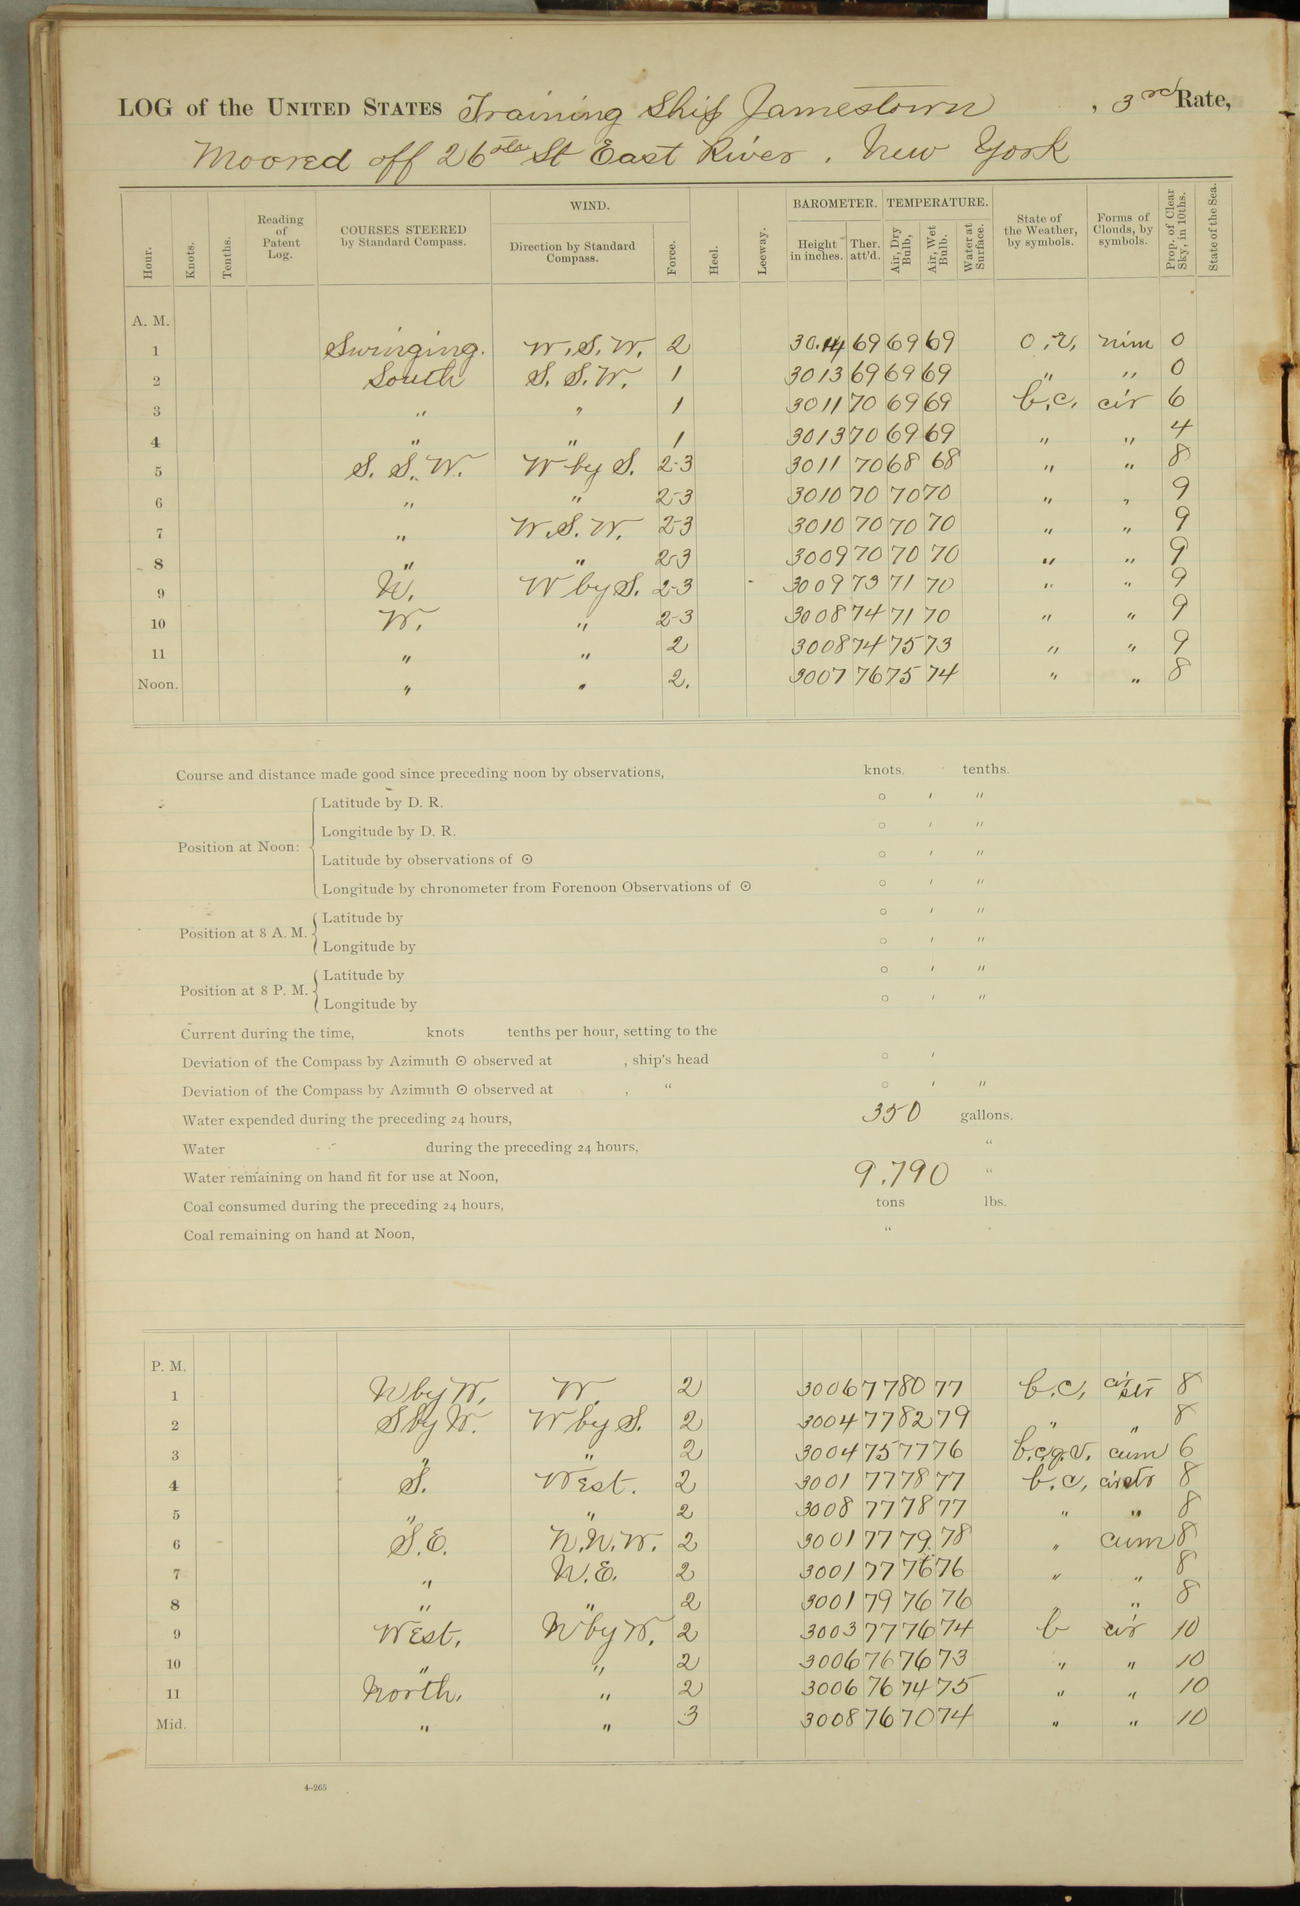 LOG of the UNITED STATES Training Ship Jamestown , 3rd Rate,
Moored off 26th St East River . New York
Hour. Knots. Tenths. Reading of Patent Log. COURSES STEERED by Standard Compass. WIND. Direction by Standard Compass. Force. Heel. Leeway. BAROMETER. Height in inches. Ther. att'd. TEMPERATURE. Air, Dry Bulb, Air, Wet Bulb. Water at Surface. State of the Weather, by symbols. Forms of Clouds, by symbols. Prop. of Clear Sky, in 10ths. State of the Sea.
A. M.
1 Swinging. W.S.W. 2 30.14 69 69 69 o.r, nim 0
2 South S.S.W. 1 3013 69 69 69 " " 0
3 " " 1 3011 70 69 69 b.c. cir 6
4 " " 1 3013 70 69 69 " " 4
5 S.S.W. W by S. 2-3 3011 70 68 68 " " 8
6 " " 2-3 3010 70 70 70 " " 9
7 " W.S.W. 2-3 3010 70 70 70 " " 9
8 " " 2-3 3009 70 70 70 " " 9
9 W. W by S. 2-3 3009 73 71 70 " " 9
10 W. " 2-3 3008 74 71 70 " " 9
11 " " 2 3008 74 75 73 " " 9
Noon. " " 2. 3007 76 75 74 " " 8
Course and distance made good since preceding noon by observations, knots. tenths.
Position at Noon: Latitude by D. R. ○ ′ ″
Longitude by D. R. ○ ′ ″
Latitude by observations of ⊙ ○ ′ ″
Longitude by chronometer from Forenoon Observations of ⊙ ○ ′ ″
Position at 8 A. M. Latitude by ○ ′ ″
Longitude by ○ ′ ″
Position at 8 P. M. Latitude by ○ ′ ″
Longitude by ○ ′ ″
Current during the time, knots tenths per hour, setting to the
Deviation of the Compass by Azimuth ⊙ observed at , ship's head ○ ′
Deviation of the Compass by Azimuth ⊙ observed at , “ ○ ′ ″
Water expended during the preceding 24 hours, 350 gallons.
Water during the preceding 24 hours, “
Water remaining on hand fit for use at Noon, 9.790 “
Coal consumed during the preceding 24 hours, tons lbs.
Coal remaining on hand at Noon, “
P. M.
1 N by W. W. 2 3006 77 80 77 b.c, cir str 8
2 S by W. W by S. 2 3004 77 82 79 " " 8
3 " " 2 3004 75 77 76 b.c.q.v. cum 6
4 S. West. 2 3001 77 78 77 b.c, cir str 8
5 " " 2 3008 77 78 77 " " 8
6 S.E. N.N.W. 2 3001 77 79 78 " cum 8
7 " N.E. 2 3001 77 76 76 " " 8
8 " " 2 3001 79 76 76 " 8
9 West, N by W. 2 3003 77 76 74 b cir 10
10 " " 2 3006 76 76 73 " " 10
11 North, " 2 3006 76 74 75 " " 10
Mid. " " 3 3008 76 70 74 " " 10
4-265